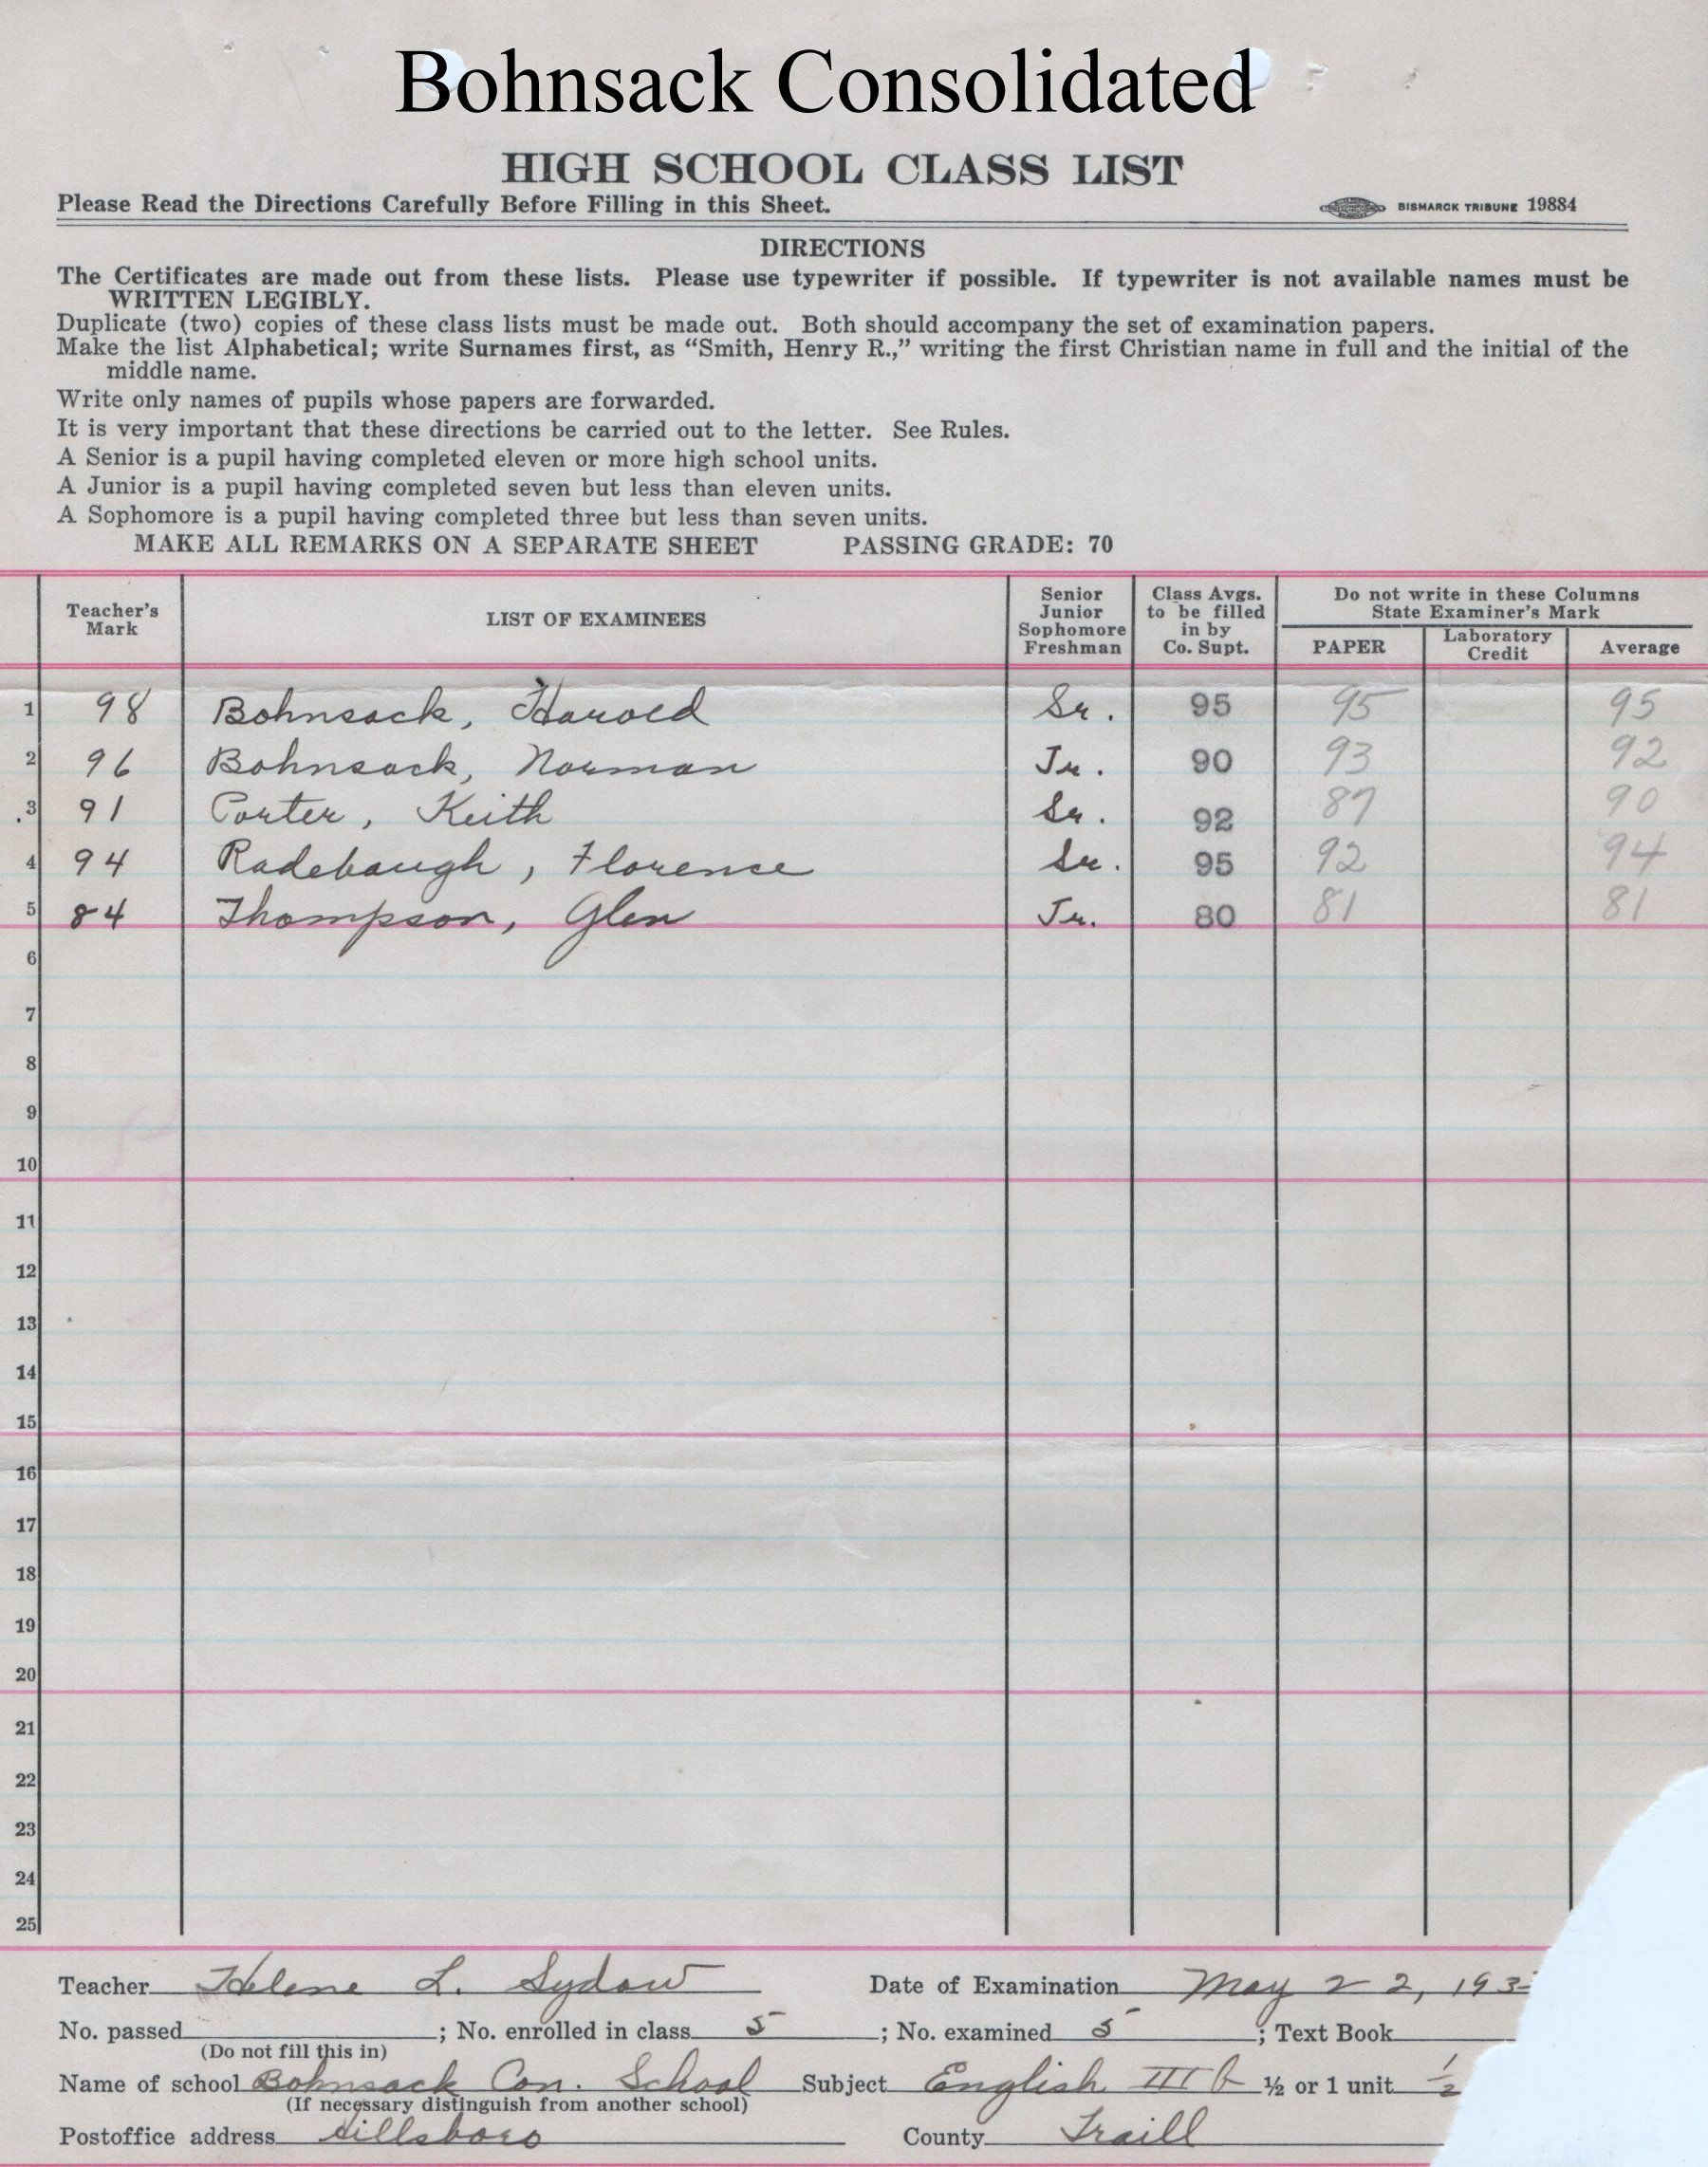 Bohnsack Consolidated
HIGH SCHOOL CLASS LIST
Please Read the Directions Carefully Before Filling in this Sheet. BISMARCK TRIBUNE 19884
DIRECTIONS
The Certificates are made out from these lists. Please use typewriter if possible. If typewriter is not available names must be
WRITTEN LEGIBLY.
Duplicate (two) copies of these class lists must be made out. Both should accompany the set of examination papers.
Make the list Alphabetical; write Surnames first, as “Smith, Henry R.,” writing the first Christian name in full and the initial of the
middle name.
Write only names of pupils whose papers are forwarded.
It is very important that these directions be carried out to the letter. See Rules.
A Senior is a pupil having completed eleven or more high school units.
A Junior is a pupil having completed seven but less than eleven units.
A Sophomore is a pupil having completed three but less than seven units.
MAKE ALL REMARKS ON A SEPARATE SHEET PASSING GRADE: 70
Teacher's
Mark
LIST OF EXAMINEES
Senior
Junior
Sophomore
Freshman
Class Avgs.
to be filled
in by
Co. Supt.
Do not write in these Columns
State Examiner's Mark
PAPER
Laboratory
Credit
Average
1 98 Bohnsack, Harold Sr. 95 95 95
2 96 Bohnsack, Norman Jr. 90 93 92
3 91 Porter, Keith Sr. 92 87 90
4 94 Radebaugh, Florence Sr. 95 92 94
5 84 Thompson, Glen Jr. 80 81 81
6
7
8
9
10
11
12
13
14
15
16
17
18
19
20
21
22
23
24
25
Teacher Helene L. Sydow Date of Examination May 22, 193
No. passed ; No. enrolled in class 5 ; No. examined 5 ; Text Book
(Do not fill this in)
Name of school Bohnsack Con. School Subject English III b ½ or 1 unit ½
(If necessary distinguish from another school)
Postoffice address Hillsboro County Traill